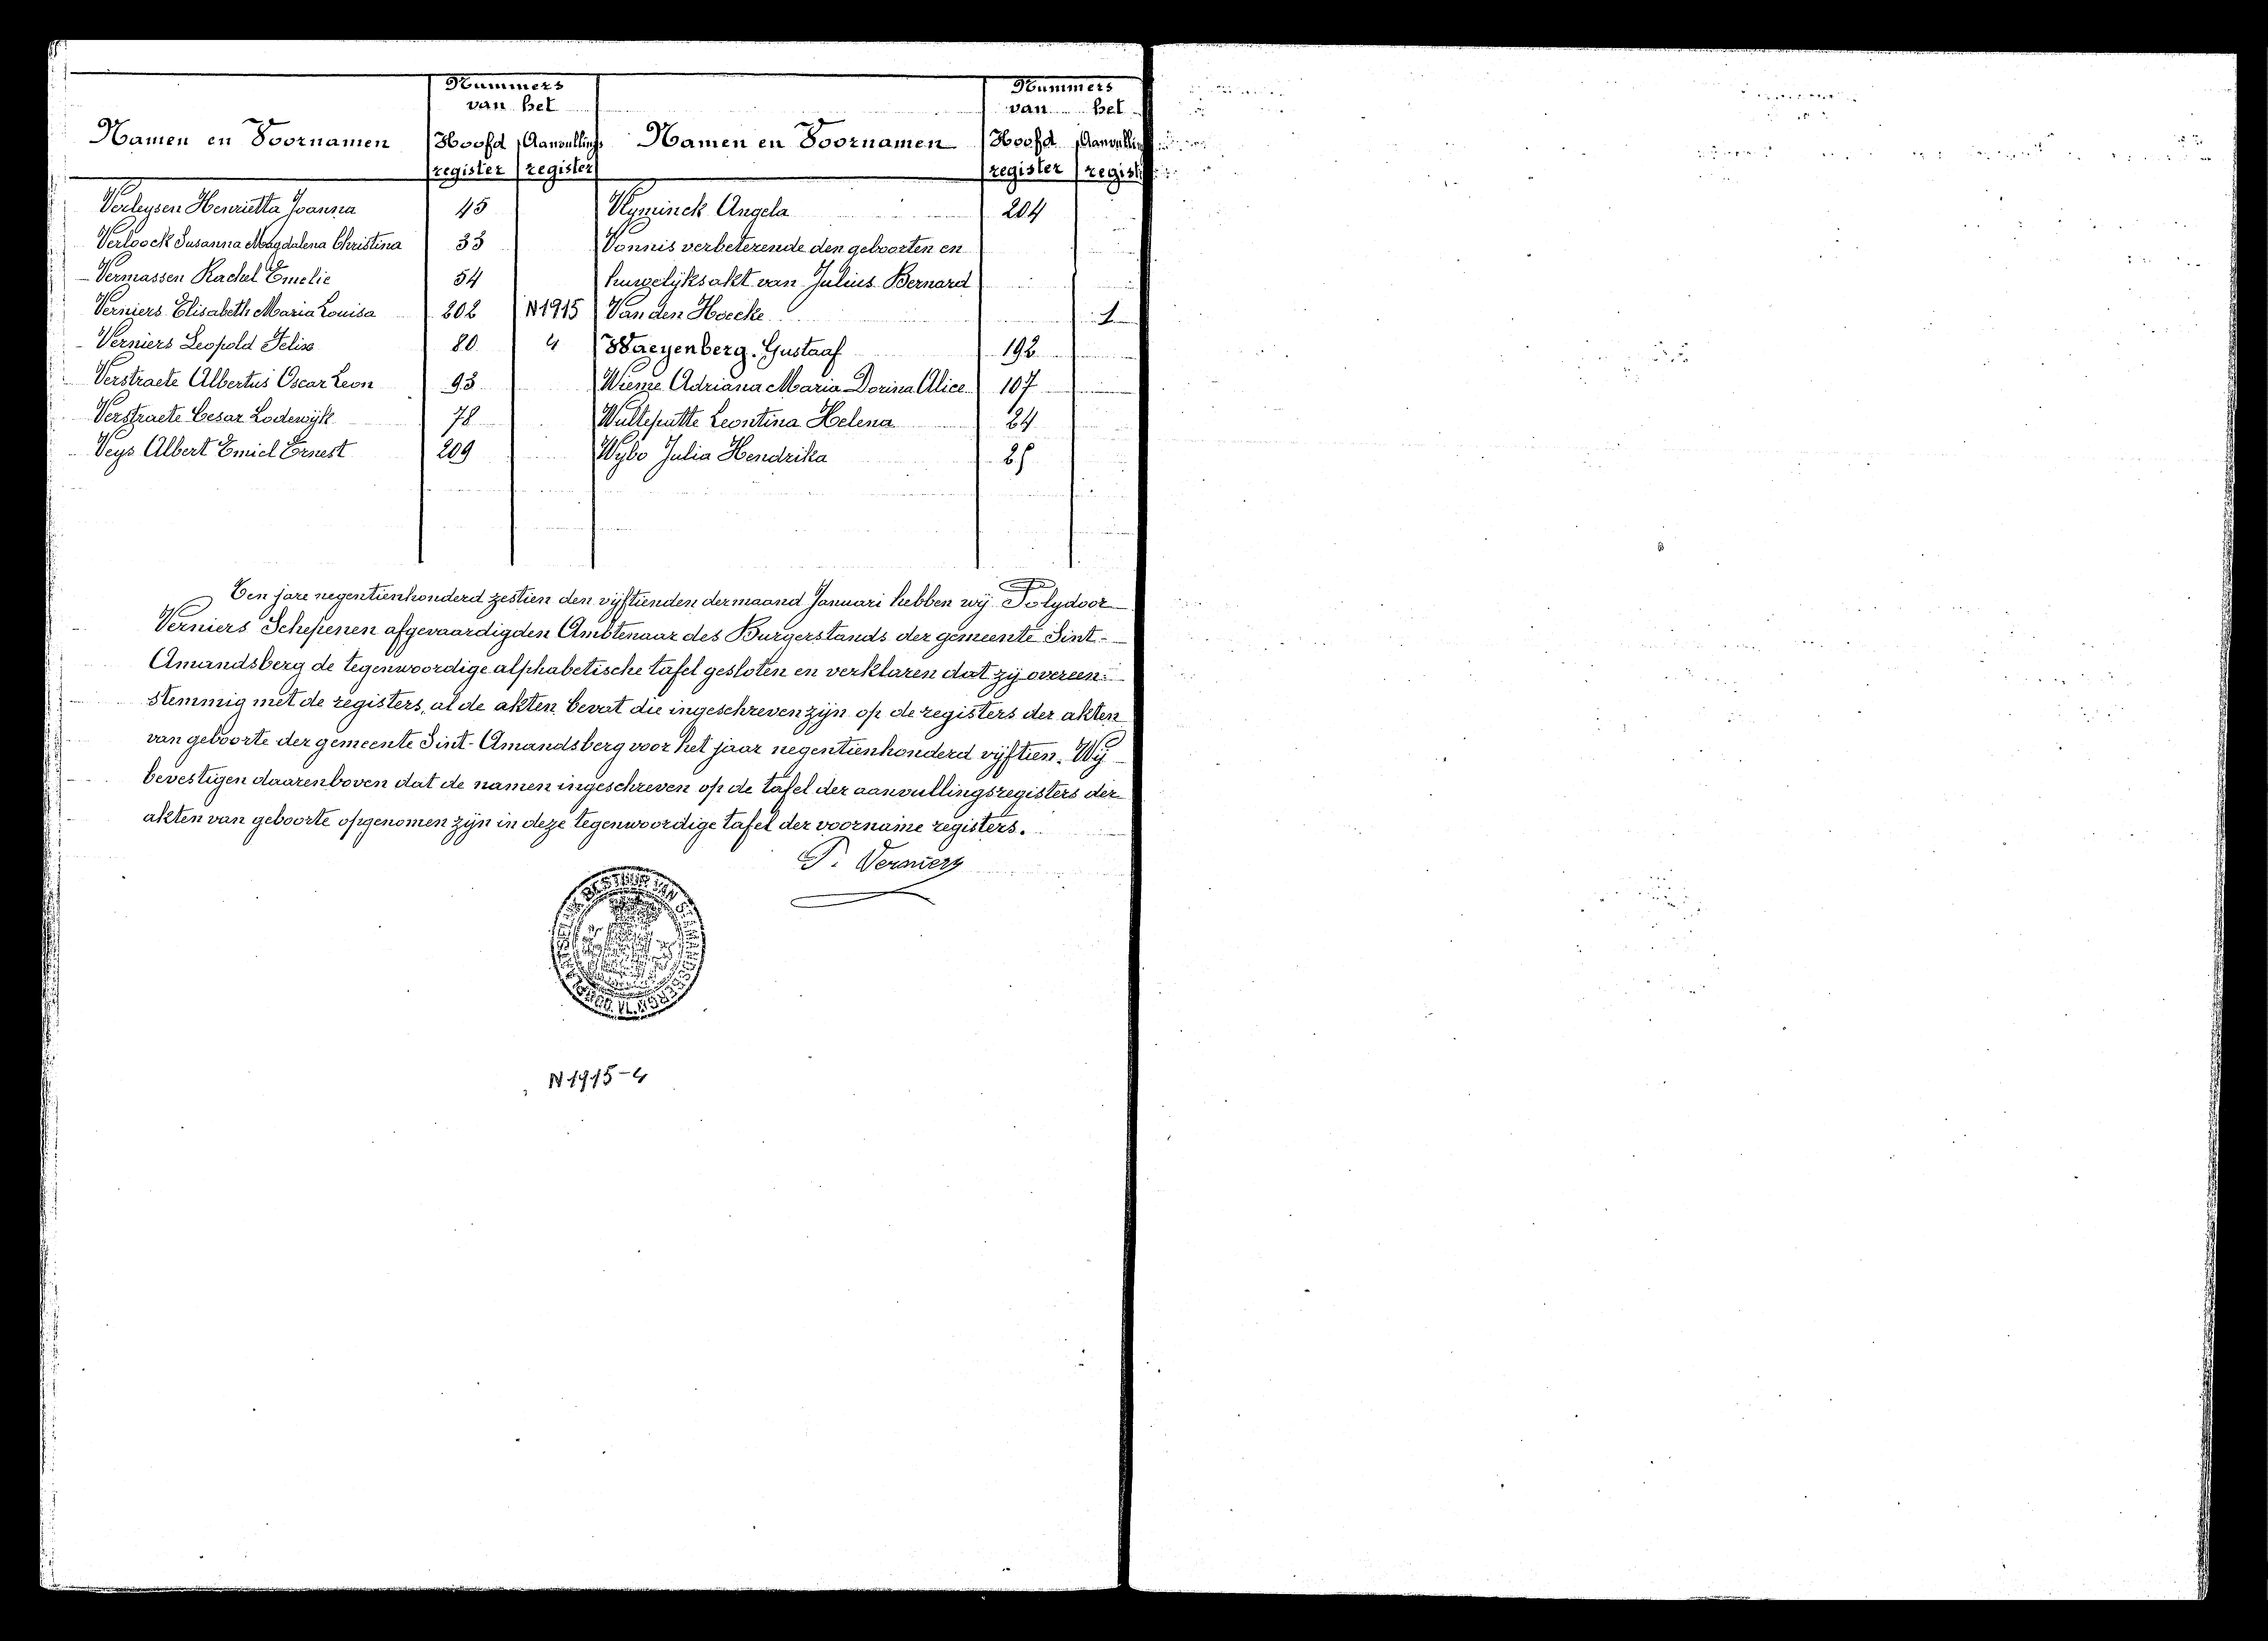 Nummers
van het
Namen en Voornamen Hoofd register Aanvullings register
Verleysen Henrietta Joanna 45
Verloock Susanna Magdalena Christina 33
Vermassen Rachel Emelie 54
Verniers Elisabeth Maria Louisa 202 N1915
Verniers Leopold Felix 80 4
Verstraete Albertus Oscar Leon 93
Verstraete Cesar Lodewijk 78
Veys Albert Emiel Ernest 209
Nummers
van het
Namen en Voornamen Hoofd register Aanvullin regist
Vlyminck Angela 204
Vonnis verbeterende den geboorten en
huwelijksakt van Julius Bernard
Van den Hoecke 1
Waeyenberg Gustaaf 192
Wieme Adriana Maria Dorina Alice 107
Wulteputte Leontina Helena 24
Wybo Julia Hendrika 25
Ten jare negentienhonderd zestien den vijftienden der maand Januari hebben wij Polydoor
Verniers Schepenen afgevaardigden Ambtenaar des Burgerstands der gemeente Sint-
Amandsberg de tegenwoordige alphabetische tafel gesloten en verklaren dat zij overeen-
stemmig met de registers, al de akten bevat die ingeschreven zijn op de registers der akten
van geboorte der gemeente Sint-Amandsberg voor het jaar negentienhonderd vijftien. Wij
bevestigen daarenboven dat de namen ingeschreven op de tafel der aanvullingsregisters der
akten van geboorte opgenomen zijn in deze tegenwoordige tafel der voorname registers.
P. Verniers
BESTUUR VAN ST AMANDSBERG
N1915-4